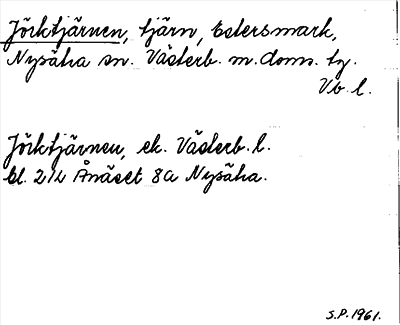 Jörktjärnen, tjärn, Estersmark,
Nysätra sn. Västerb. m. doms. ty.
Vb. l.
Jörktjärnen, ek. Västerb. l.
bl. 214 Ånäset 8a Nysätra.
S.P. 1961.